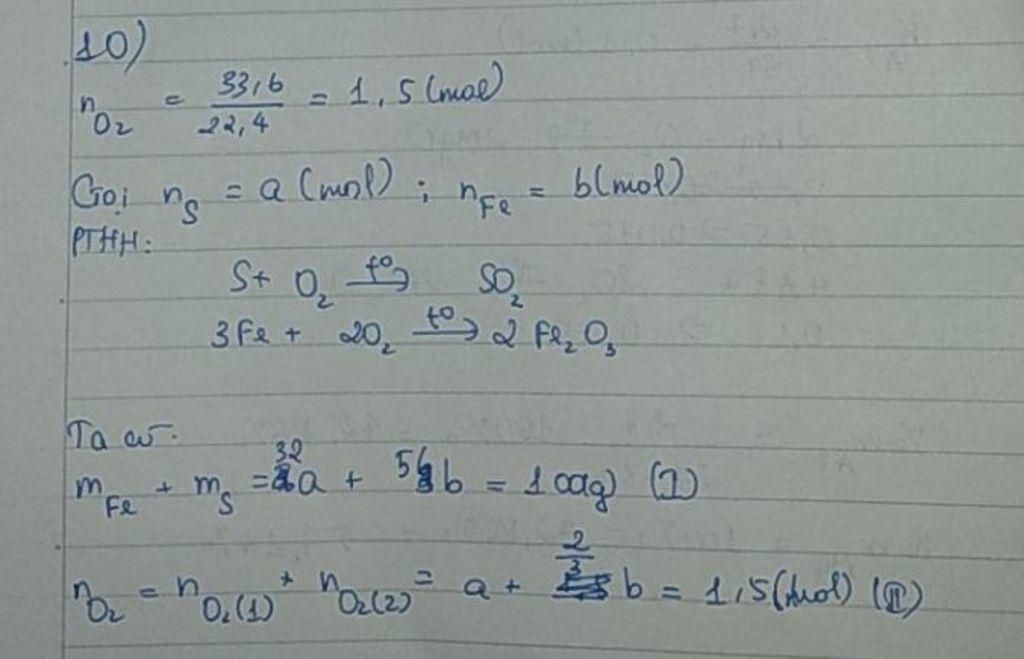 10)
n_O₂ = 33,6/22,4 = 1,5 (mol)
Gọi n_S = a (mol) ; n_Fe = b (mol)
PTHH:
S + O₂ —t°→ SO₂
3Fe + 2O₂ —t°→ 2 Fe₂O₃
Ta có:
m_Fe + m_S = 32a + 56b = 100(g) (I)
n_O₂ = n_O₂(1) + n_O₂(2) = a + 2/3 b = 1,5 (mol) (II)